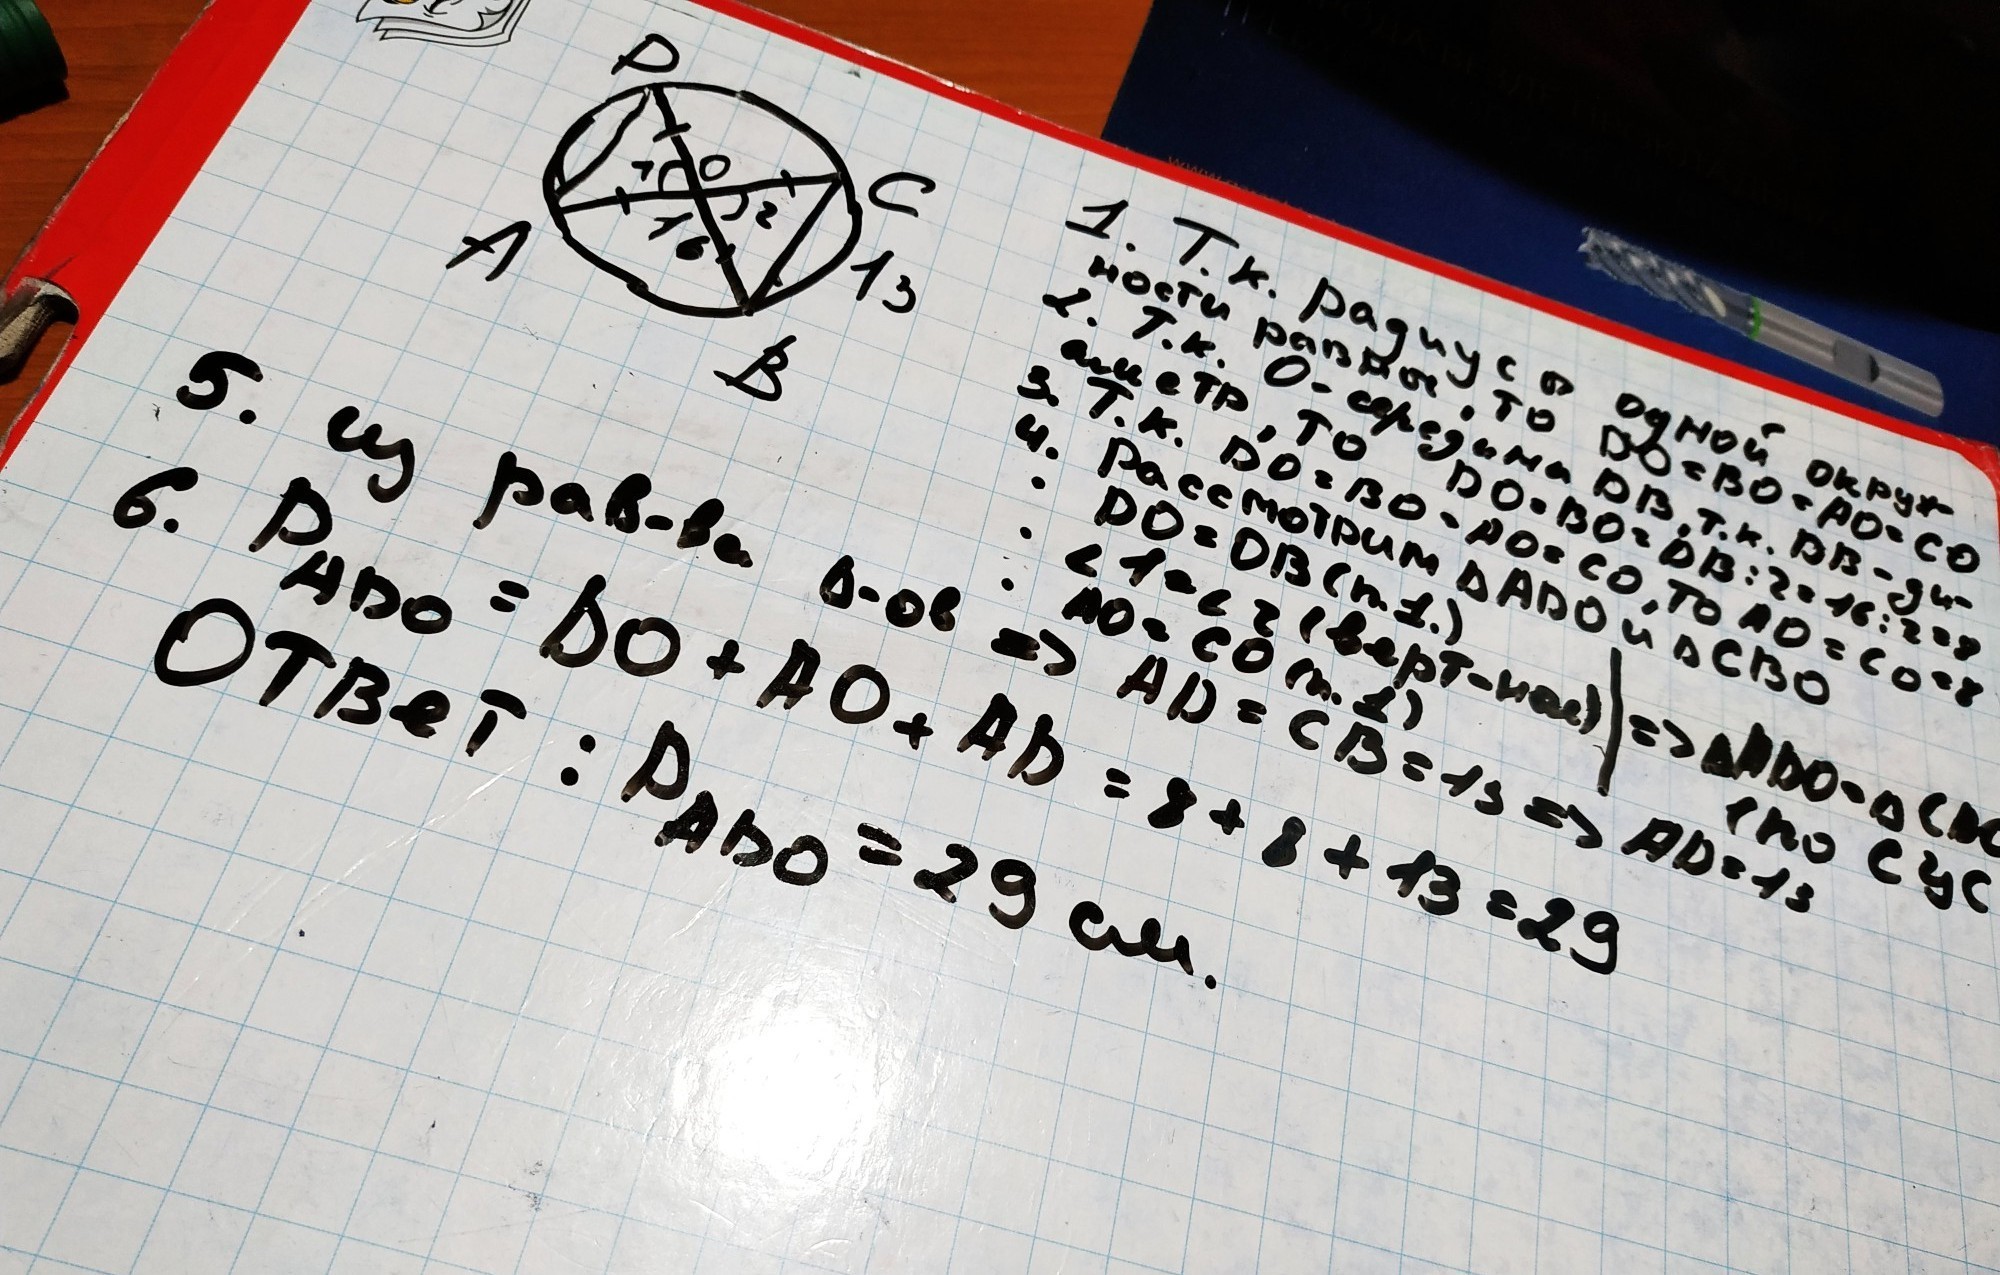 D
O
1
C
2
A
16
13
B
1. Т.к. радиусы одной окруж-
ности равны, то DO=BO=AO=CO
2. Т.к. O-середина DB, т.к. DB-ди-
аметр, то DO=BO=DB:2=16:2=8
3. Т.к. DO=BO=AO=CO, то AO=CO=8
4. Рассмотрим ΔADO и ΔCBO
DO=OB(п.1.)
<1=<2(верт-ные) => ΔADO=Δ
AO=CO(п.1) (по СУС
5. из рав-ва Δ-ов => AD=CB=13 => AD=13
6. PADO=DO+AO+AD=8+8+13=29
Ответ: PADO=29 см.